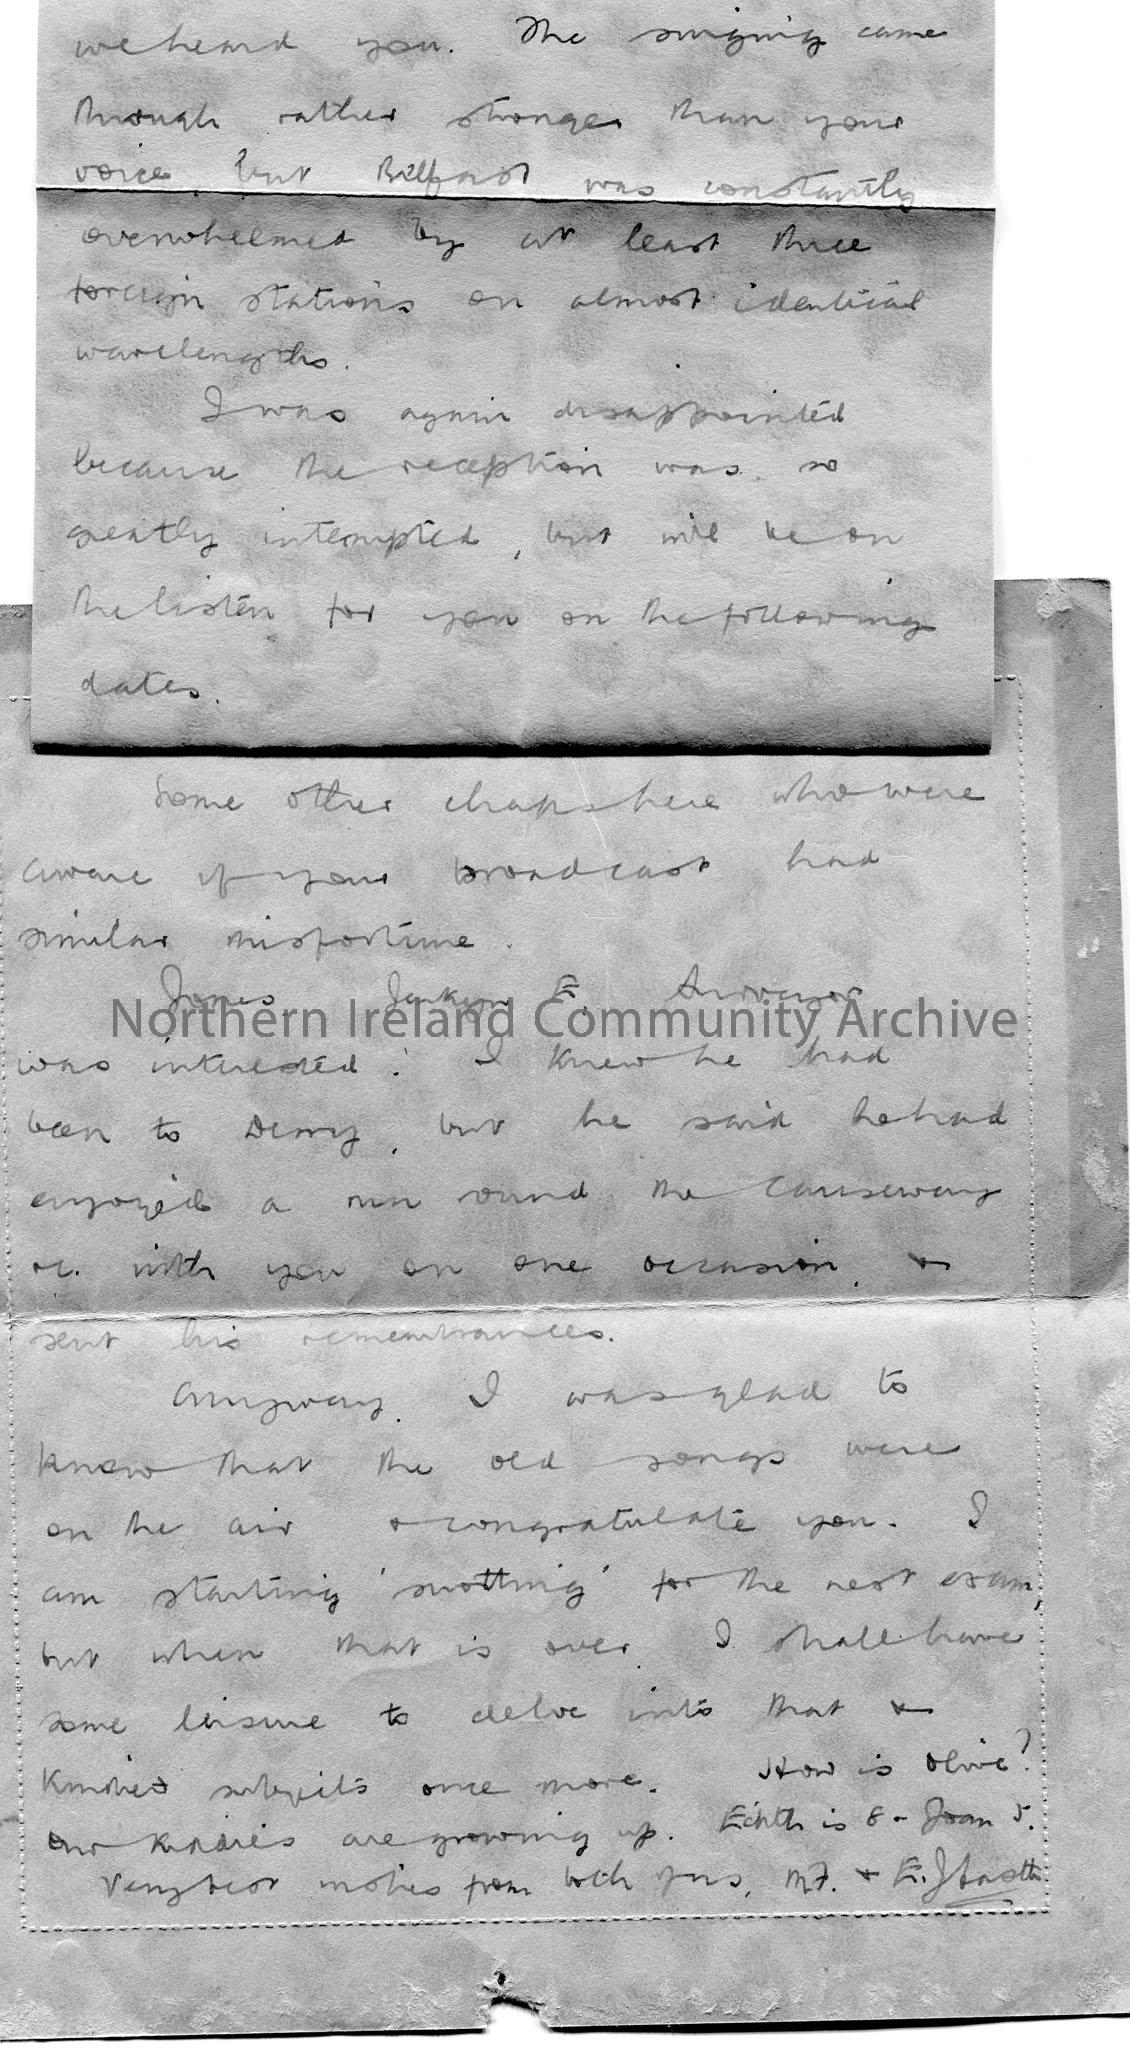 we heard you. The singing came
through rather stronger than your
voice, but Belfast was constantly
overwhelmed by at least three
foreign stations on almost identical
wavelengths.
I was again disappointed
because the reception was so
greatly interrupted, but will be on
the listen for you on the following
dates.
Some other chaps here who were
aware of your broadcast had
similar misfortune.
Jones Jenkyn E. Surveyor
Northern Ireland Community Archive
was interested! I knew he had
been to Derry, but he said he had
enjoyed a run round the Causeway
&c. with you on one occasion, &
sent his remembrances.
Anyway, I was glad to
know that the old songs were
on the air & congratulate you. I
am starting 'swotting' for the next exam,
but when that is over, I shall have
some leisure to delve into that &
kindred subjects once more. How is Olive?
Our kiddies are growing up. Edith is 8 - Joan 5.
Very best wishes from both of us, M.F. & E.